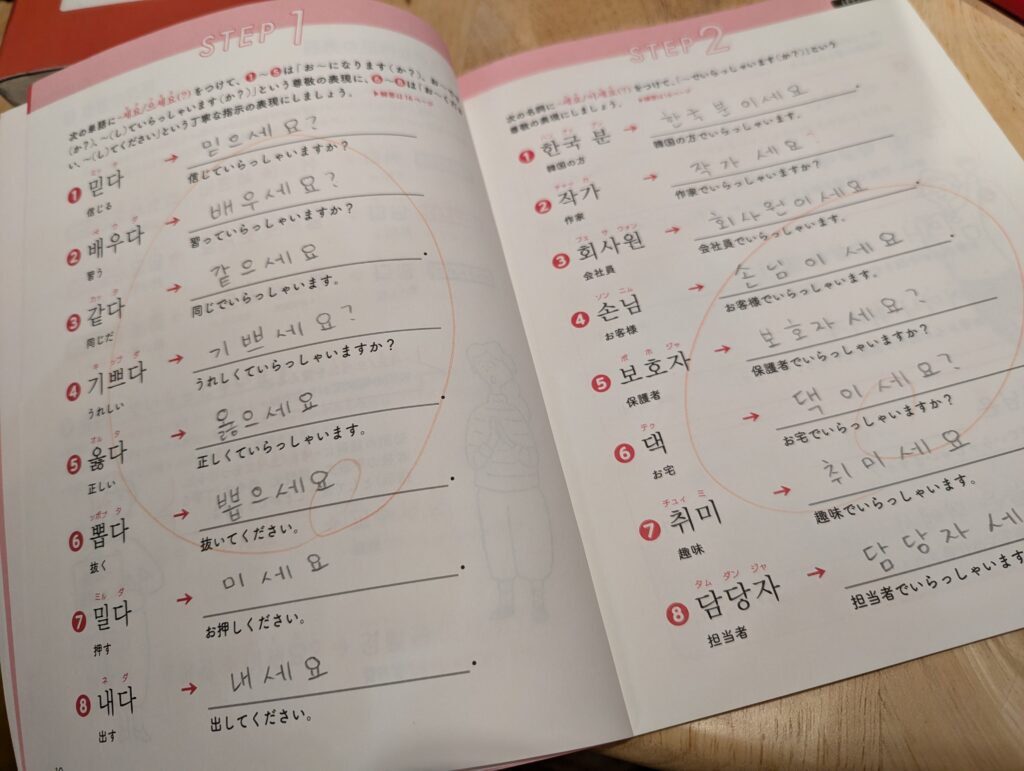 STEP 1
次の単語に-세요/으세요(?)をつけて、①〜⑤は「お〜になります(か？)、お〜
(か？)、〜(し)ていらっしゃいます(か？)」という尊敬の表現に、⑥〜⑧は「お〜ください
い、〜(し)てください」という丁寧な指示の表現にしましょう。
▶解答は16ページ
① 믿다 → 믿으세요?
信じる
信じていらっしゃいますか？
② 배우다 → 배우세요?
習う
習っていらっしゃいますか？
③ 같다 → 같으세요.
同じだ
同じでいらっしゃいます。
④ 기쁘다 → 기쁘세요?
うれしい
うれしくていらっしゃいますか？
オル タ
⑤ 옳다 → 옳으세요.
正しい
正しくていらっしゃいます。
ッポプ タ
⑥ 뽑다 → 뽑으세요.
抜く
抜いてください。
ミル ダ
⑦ 밀다 → 미세요.
押す
お押しください。
ネ ダ
⑧ 내다 → 내세요.
出す
出してください。
STEP 2
次の名詞に-세요/이세요(?)をつけて、「〜でいらっしゃいます(か？)」という
尊敬の表現にしましょう。
▶解答は16ページ
① 한국 분 → 한국 분이세요.
韓国の方
韓国の方でいらっしゃいます。
② 작가 → 작가세요?
作家
作家でいらっしゃいますか？
フェ サ ウォン
③ 회사원 → 회사원이세요.
会社員
会社員でいらっしゃいます。
ソン ニム
④ 손님 → 손님이세요.
お客様
お客様でいらっしゃいます。
ポ ホ ジャ
⑤ 보호자 → 보호자세요?
保護者
保護者でいらっしゃいますか？
テク
⑥ 댁 → 댁이세요?
お宅
お宅でいらっしゃいますか？
チュイ ミ
⑦ 취미 → 취미세요
趣味
趣味でいらっしゃいます。
タム ダン ジャ
⑧ 담당자 → 담당자세
担当者
担当者でいらっしゃいます